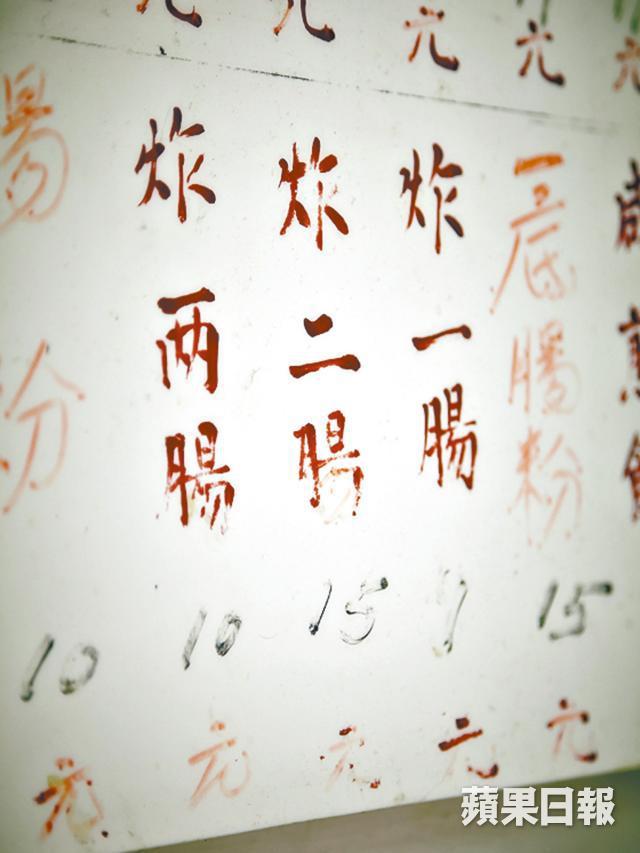 元
元
元
元
咸煎
一底腸粉
15
元
炸一腸
元
炸二腸
15
元
炸两腸
10
元
腸粉
10
元
蘋果日報